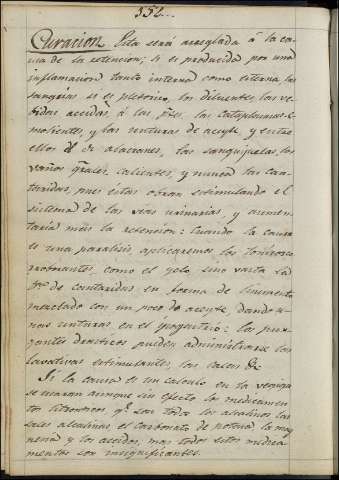 352..
Curacion. Esta será arreglada á la cau-
sa de la retencion; si es producida por una
inflamacion tanto interna como esterna las
sangrias si es pletorico, los diluentes, las ve-
bidas acidas, á las ptes. las cataplasmas E-
molientes, y las unturas de aceyte, y entre
ellos el de alacranes, las sanguijuelas, los
vaños grales. calientes, y nunca las can-
taridas, pues estas obran estimulando el
sistema de las vias urinarias, y aumen-
taria mas la retencion: Cuando la causa
es una paralisis aplicaremos los tonicos
como el yelo sino vasta la
de cantaridas en forma de linimento
mezclado con un poco de aceyte, dando u-
nas unturas en el ypogastrio: los pur-
gantes drasticos pueden administrarse las
lavativas estimulantes, las calas &c.
Si la causa es un calculo en la vegiga
se usaran aunque sin efecto los medicamen-
tos litronticos, qe. son todos los alcalinos las
sales alcalinas el carbonato de potasa, la mag-
nesia y los acidos, mas todos estos medica-
mentos son insignificantes.